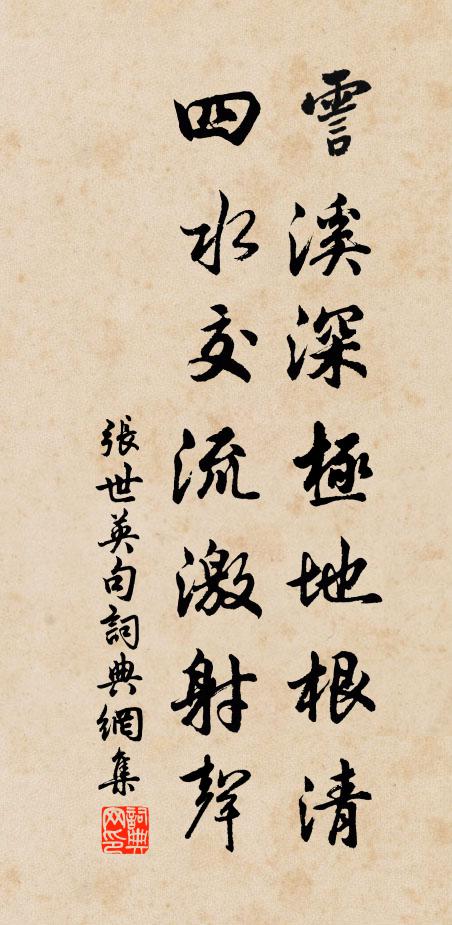 霅溪深極地根清
四水交流激射聲
張世英句詞典網集
詞典
网印